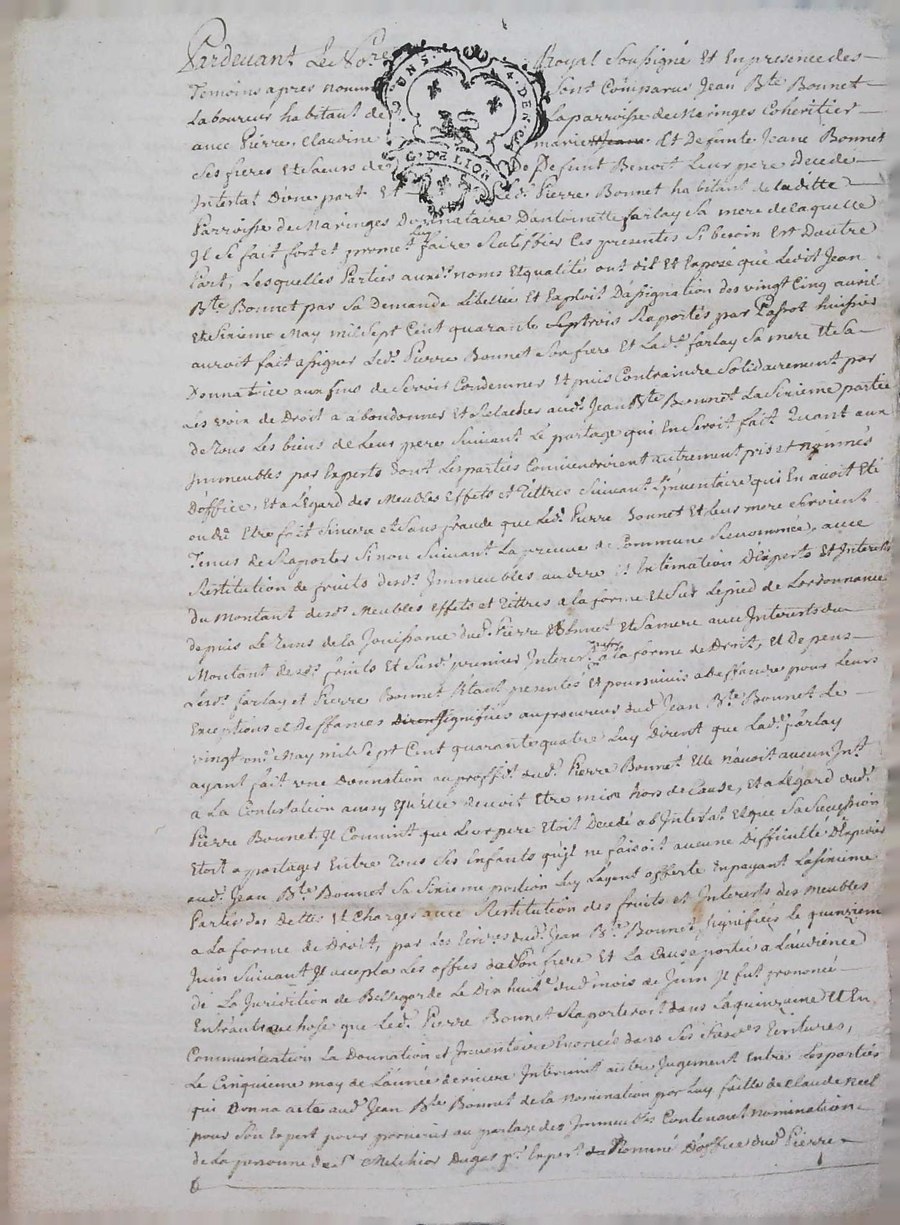 Pardevant Le No.re Royal Soussigné Et En presence des
Temoins apres nommés sont Comparus Jean Bte Bonnet
Laboureur habitant de La parroisse de Maringes Coheritier
avec Pierre, Claudine marie Et Defunte Jeane Bonnet
ses freres Et Sœurs de Defunt Benoit Leur pere decede
Intestat D'une part Et Led. Pierre Bonnet habitant de Laditte
Parroisse de Maringes Donnataire D'antoinette farlay Sa mere de laquelle
Il se fait fort et promet faire Ratiffier Ces presentes Si besoin Est D'autre
Part, Lesquelles Parties auxd. noms Et qualité ont dit Et Exposé que Ledit Jean
Bte Bonnet par Sa Demande Libellée Et Exploit D'assignation des vingt Cinq avril
Et Sixieme May mil Sept Cent quarante trois Raportés par huissier
auroit fait assigner Led. Pierre Bonnet Son frere Et Lad. farlay Sa mere Et Sa
Donnatrice aux fins de Se voir Condemner Et puis Contraindre Solidairement par
Les voix de Droit a abandonner Et Relacher aud. Jean Bte Bonnet La Sixieme partie
de Tous Les biens de Leur pere Suivant Le partage qui En Seroit fait Quant aux
Immeubles par Experts dont Les parties Conviendroient autrement pris et nommés
D'office, Et a L'Egard des Meubles Effets et Tittres Suivant L'Inventaire qui En avoit Eté
ou dû Etre fait Sincere et Sans fraude que Led. Pierre Bonnet Et Leur mere Seroient
Tenus de Raporter Sinon Suivant La preuve de Commune Renommée, avec
Restitution de fruits desd. Immeubles au dire Et Estimation D'Experts Et Interets
du Montant desd. Meubles Effets et Tittres a la forme et Sur Le pied de L'ordonnance
depuis Le Tems de la Jouissance dud. Pierre Bonnet Et Sa mere avec Interests du
Montant desd. fruits Et Susd. premier Interets a la forme de Droit, Et Depens
Lesd. farlay et Pierre Bonnet S'etant presentés Et poursuivis a Deffendre pour Leurs
Exceptions et Deffances Signifiées au procureur dud. Jean Bte Bonnet Le
vingt May mil Sept Cent quarante quatre Luy Dirent que Lad. farlay
ayant fait une Donnation au proffit dud. Pierre Bonnet Elle n'avoit aucun Int.
a La Contestation aussy qu'Elle devoit Etre mise hors de Cause, Et a L'Egard dud.
Pierre Bonnet, Il Convint que Leur pere Etoit Decedé ab Intestat Et que Sa Succession
Etoit a partager Entre Tous Ses Enfants qu'il ne faisoit aucune Difficulté D'Expedier
aud. Jean Bte Bonnet Sa Sixieme portion Luy L'ayant offerte En payant La Sixieme
Partie des Dettes Et Charges avec Restitution des fruits et Interests des meubles
a La forme de Droit, par Les Ecritures dud. Jean Bte Bonnet Signifiées Le quinzieme
Juin Suivant Il accepta Les offres de Son frere Et La Cause portée a L'audience
de La Juridiction de Bellegarde Le Dix huit dud. mois de Juin Il fut prononcé
Entr'autre Chose que Led. Pierre Bonnet Raporteroit dans La quinzaine Et En
Communication La Donnation et Inventaire Enoncée dans Ses Ecritures,
Le Cinquieme may de L'année derniere Intervint autre Jugement Entre Les parties
qui Donna acte aud. Jean Bte Bonnet de la nomination par Luy faitte de Claude
pour Son Expert pour proceder au partage des Immeubles Contenant nomination
de La personne de Melchior Dugas pr. Expert Nommé D'office dud. Pierre